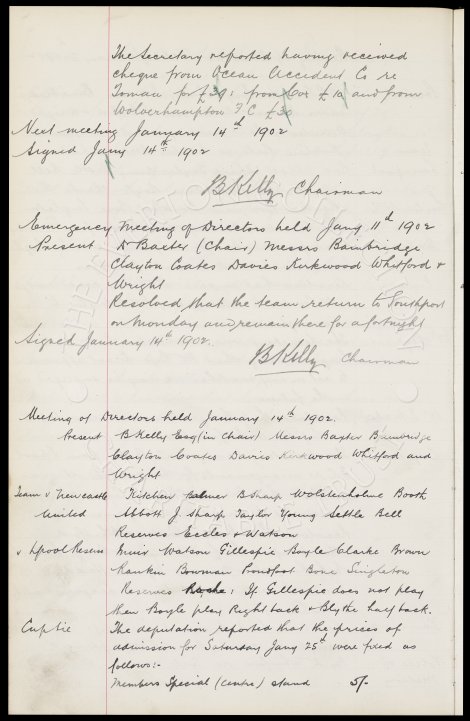 The Secretary reported having received
cheque from Ocean Accident Co re
Toman for £30: from Cox £10 and from
Wolverhampton F C £30
Next meeting January 14th 1902
Signed Jany 14th 1902
B Kelly Chairman
Emergency Meeting of Directors held Jany 11th 1902
Present Dr Baxter (Chair) Messrs Bainbridge
Clayton Coates Davies Kirkwood Whitford &
Wright
Resolved that the team return to Southport
on Monday and remain there for a fortnight
Signed January 14th 1902.
B Kelly Chairman
Meeting of Directors held January 14th 1902.
Present B Kelly Esq (in Chair) Messrs Baxter Bainbridge
Clayton Coates Davies Kirkwood Whitford and
Wright
Team v Newcastle Kitchen Balmer B Sharp Wolstenholme Booth
United Abbott J. Sharp Taylor Young Settle Bell
Reserves Eccles & Watson
v Lpool Reserves Muir Watson Gillespie Boyle Clarke Brown
Rankin Bowman Proudfoot Bone Singleton
Reserves Roche: If Gillespie does not play
then Boyle play Right back & Blythe half back.
Cup tie The deputation reported that the prices of
admission for Saturday Jany 25th were fixed as
follows:-
Members Special (Centre) stand 5/-